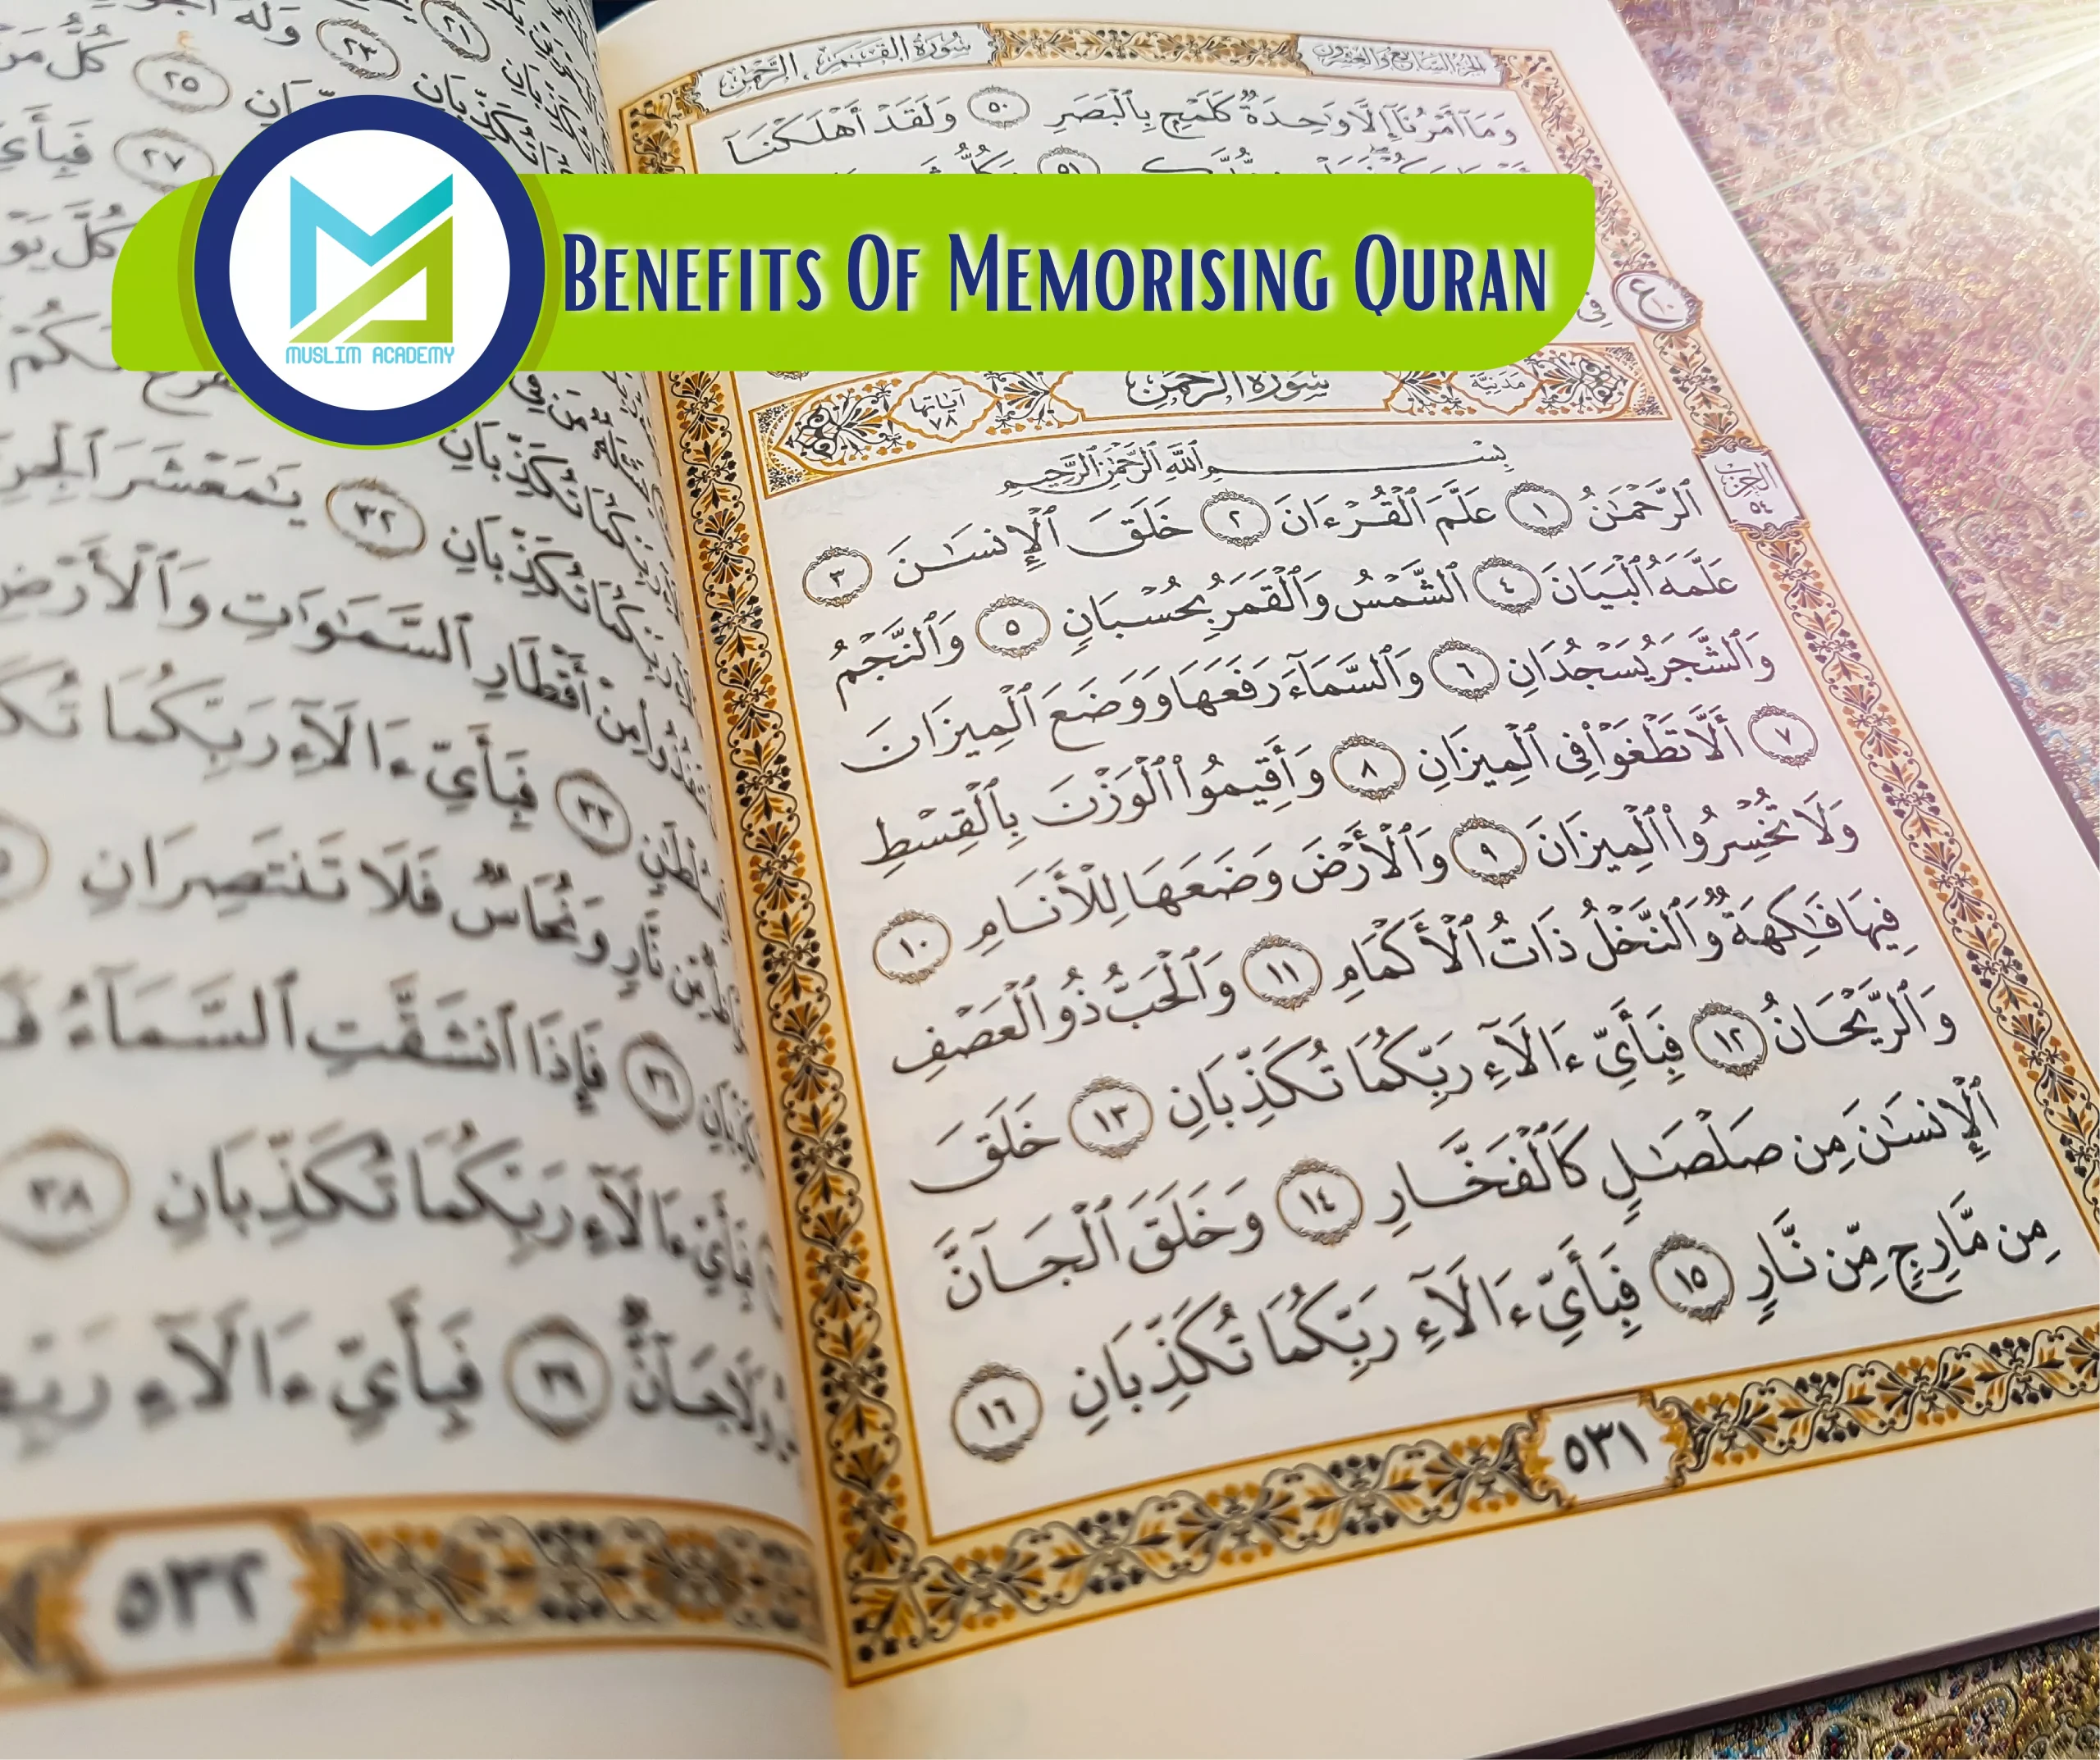 MUSLIM ACADEMY
BENEFITS OF MEMORISING QURAN
سورة القمر، الرحمن
الجزء السابع والعشرون
وَمَآ أَمْرُنَآ إِلَّا وَٰحِدَةٌ كَلَمْحٍۭ بِٱلْبَصَرِ ٥٠ وَلَقَدْ أَهْلَكْنَآ
٥١
فِى
سورة الرحمن
مدنية
آياتها ٧٨
بِسْمِ ٱللَّهِ ٱلرَّحْمَٰنِ ٱلرَّحِيمِ
الحزب ٥٤
ٱلرَّحْمَٰنُ ١ عَلَّمَ ٱلْقُرْءَانَ ٢ خَلَقَ ٱلْإِنسَٰنَ ٣
عَلَّمَهُ ٱلْبَيَانَ ٤ ٱلشَّمْسُ وَٱلْقَمَرُ بِحُسْبَانٍ ٥ وَٱلنَّجْمُ
وَٱلشَّجَرُ يَسْجُدَانِ ٦ وَٱلسَّمَآءَ رَفَعَهَا وَوَضَعَ ٱلْمِيزَانَ
٧ أَلَّا تَطْغَوْا۟ فِى ٱلْمِيزَانِ ٨ وَأَقِيمُوا۟ ٱلْوَزْنَ بِٱلْقِسْطِ
وَلَا تُخْسِرُوا۟ ٱلْمِيزَانَ ٩ وَٱلْأَرْضَ وَضَعَهَا لِلْأَنَامِ ١٠
فِيهَا فَٰكِهَةٌ وَٱلنَّخْلُ ذَاتُ ٱلْأَكْمَامِ ١١ وَٱلْحَبُّ ذُو ٱلْعَصْفِ
وَٱلرَّيْحَانُ ١٢ فَبِأَىِّ ءَالَآءِ رَبِّكُمَا تُكَذِّبَانِ ١٣ خَلَقَ
ٱلْإِنسَٰنَ مِن صَلْصَٰلٍ كَٱلْفَخَّارِ ١٤ وَخَلَقَ ٱلْجَآنَّ
مِن مَّارِجٍ مِّن نَّارٍ ١٥ فَبِأَىِّ ءَالَآءِ رَبِّكُمَا تُكَذِّبَانِ ١٦
٥٣١
وَلَهُ
٢٥ كُلُّ مَنْ
٢٧ فَبِأَىِّ
تُكَذِّبَانِ
كُلَّ يَوْمٍ
تُكَذِّبَانِ ٣٢ يَٰمَعْشَرَ ٱلْجِنِّ
مِنْ أَقْطَارِ ٱلسَّمَٰوَٰتِ وَٱلْأَرْضِ
٣٣ فَبِأَىِّ ءَالَآءِ رَبِّكُمَا
مِّن نَّارٍ وَنُحَاسٌ فَلَا تَنتَصِرَانِ
٣٦ فَإِذَا ٱنشَقَّتِ ٱلسَّمَآءُ
فَبِأَىِّ ءَالَآءِ رَبِّكُمَا تُكَذِّبَانِ ٣٨
وَلَا جَآنٌّ ٣٩ فَبِأَىِّ ءَالَآءِ
٥٣٢